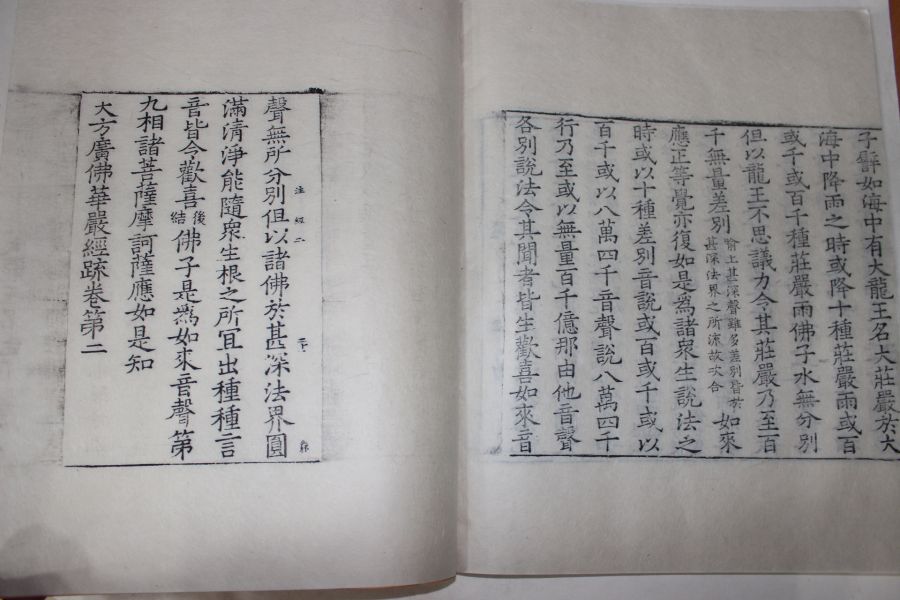 子譬如海中有大龍王名大莊嚴於大
海中降雨之時或降十種莊嚴雨或百
或千或百千種莊嚴雨佛子水無分別
但以龍王不思議力令其莊嚴乃至百
千無量差別
喻上甚深聲雖多差別皆於
甚深法界之所流故次合
如來
應正等覺亦復如是爲諸衆生說法之
時或以十種差別音說或百或千或以
百千或以八萬四千音聲說八萬四千
行乃至或以無量百千億那由他音聲
各別說法令其聞者皆生歡喜如來音
聲無所分別但以諸佛於甚深法界圓
滿清淨能隨衆生根之所宜出種種言
音皆令歡喜
後
結
佛子是爲如來音聲第
九相諸菩薩摩訶薩應如是知
大方廣佛華嚴經䟽卷第二